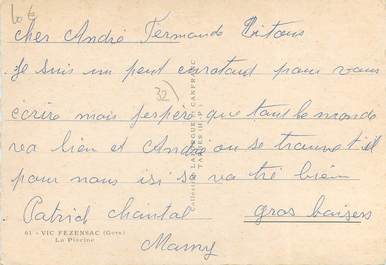 60 €
cher André Fernande Titous
Je suis un peut enretard pour vous
32)
écrire mais j'espère que tout le monde
va bien et André ou se trouve t'il
pour nous isi sa va tré bien
Patrick chantal gros baisers
Mamy
61 - VIC FEZENSAC (Gers)
La Piscine
TARBES (H.-P.)